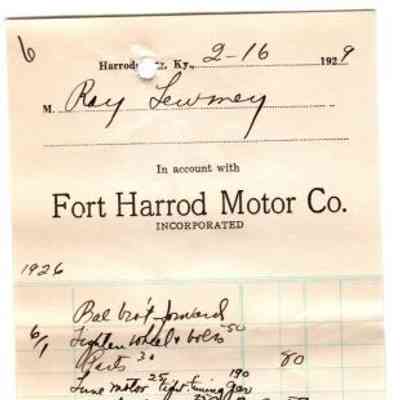 6
Harrods g, Ky., 2-16 1929
M. Ray Lewmey
In account with
Fort Harrod Motor Co.
INCORPORATED
1926
Bal bro't forward
6/1 Tighten wheel & bolts 50
Parts 30 80
Tune motor 25 tight. timing gear 190